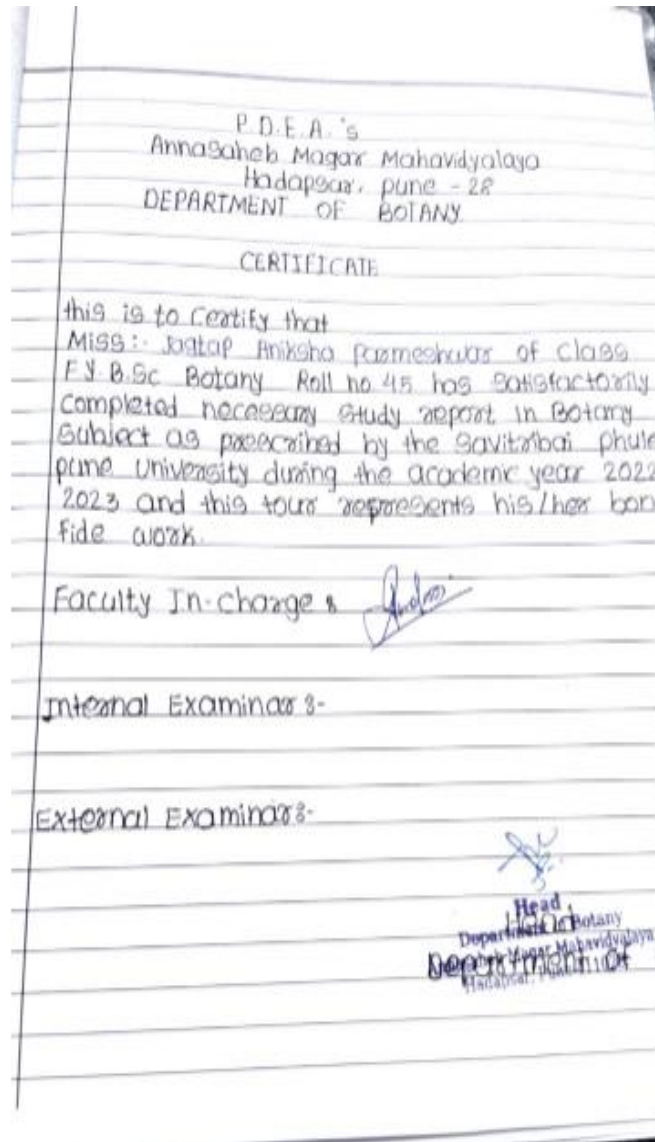 P.D.E.A.'s
Annasaheb Magar Mahavidyalaya
Hadapsar, pune - 28
DEPARTMENT OF BOTANY
CERTIFICATE
this is to Certify that
Miss:- Jagtap Aniksha Parmeshwar of class
F.Y.B.Sc Botany Roll no 45 has Satisfactorily
Completed necessary study report in Botany
Subject as prescribed by the Savitribai phule
pune University during the academic year 2022
2023 and this tour represents his/her bon
fide work.
Faculty In-charge :
Internal Examinar :-
External Examinar :-
Head
Head
Department of Botany
Magar Mahavidyalaya
Department of
Hadapsar,